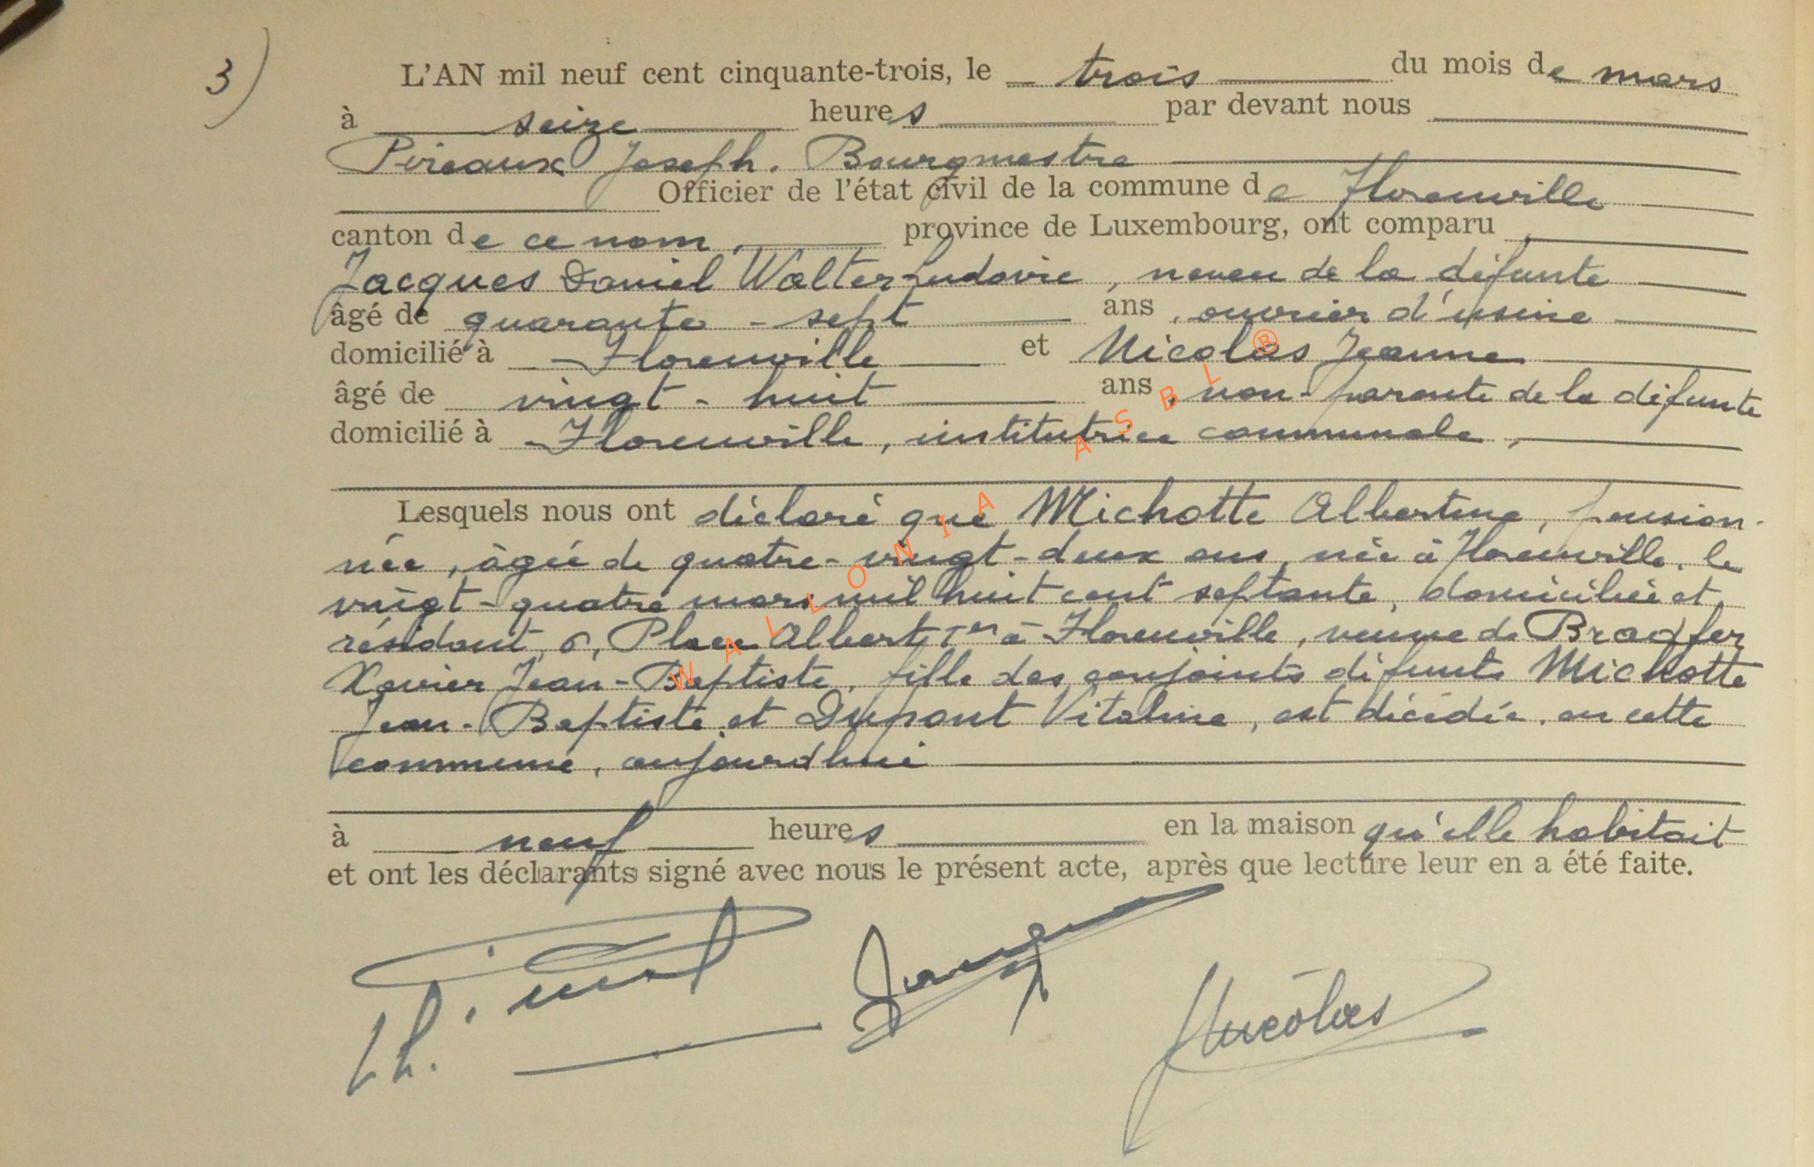 3)
L'AN mil neuf cent cinquante-trois, le trois du mois de mars
à seize heures par devant nous
Pireaux Joseph. Bourgmestre
Officier de l'état civil de la commune de Florenville
canton de ce nom, province de Luxembourg, ont comparu
Jacques Daniel Walter Ludovic, neveu de la défunte
âgé de quarante-sept ans, ouvrier d'usine
domicilié à Florenville et Nicolas Jeanne
âgé de vingt-huit ans, non-parente de la défunte
domicilié à Florenville, institutrice communale,
Lesquels nous ont déclaré que Michotte Albertine, pension-
née, âgée de quatre-vingt-deux ans, née à Florenville, le
vingt-quatre mars mil huit cent septante, domiciliée et
résidant, 6, Place Albert Ier à Florenville, veuve de Bradfer
Xavier Jean-Baptiste, fille des conjoints défunts Michotte
Jean-Baptiste et Dupont Vitaline, est décédée, en cette
commune, aujourd'hui
à neuf heures en la maison qu'elle habitait
et ont les déclarants signé avec nous le présent acte, après que lecture leur en a été faite.
Jacques
JNicolas
WALLONIA ASBL ®